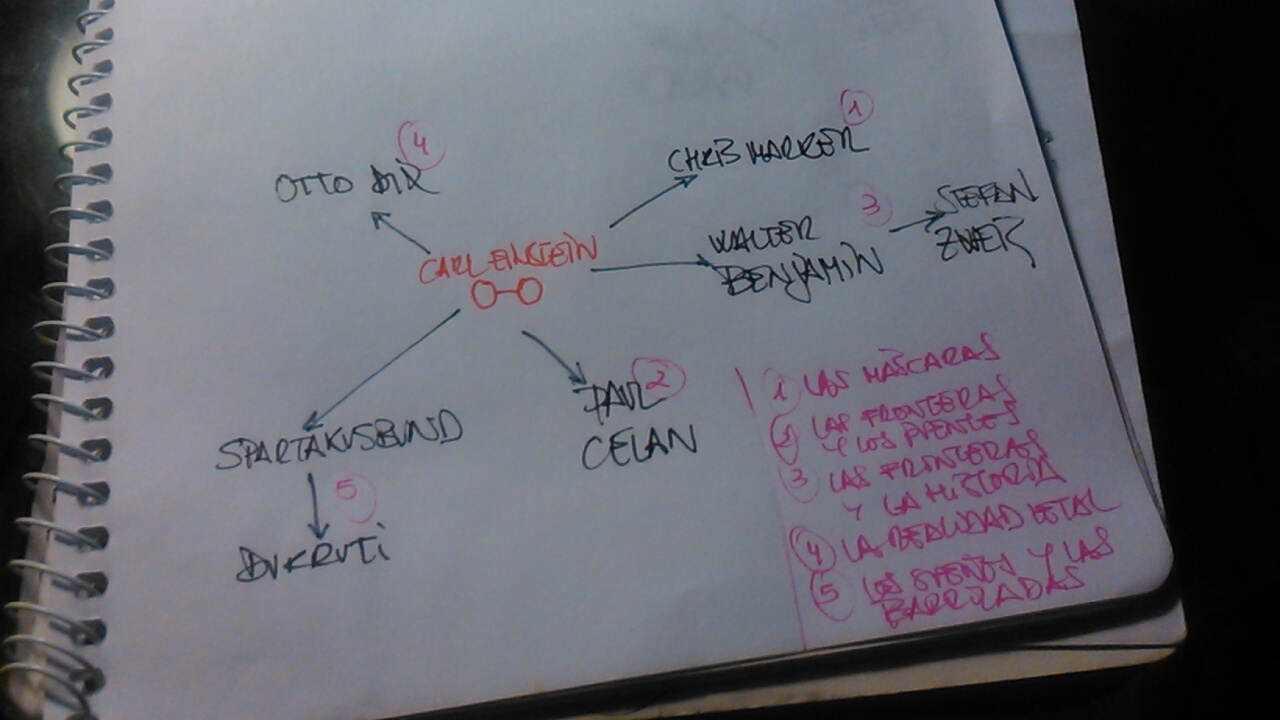 4
OTTO DIX
1
CHRIS MARKER
CARL EINSTEIN
3
WALTER
BENJAMIN
STEFAN
ZWEIG
SPARTAKUSBUND
5
DURRUTI
2
PAUL
CELAN
1 LAS MÁSCARAS
2 LAS FRONTERAS
Y LOS PUENTES
3 LAS FRONTERAS
Y LA HISTORIA
4 LA REALIDAD LETAL
5 LOS SUEÑOS Y LAS
BARRICADAS